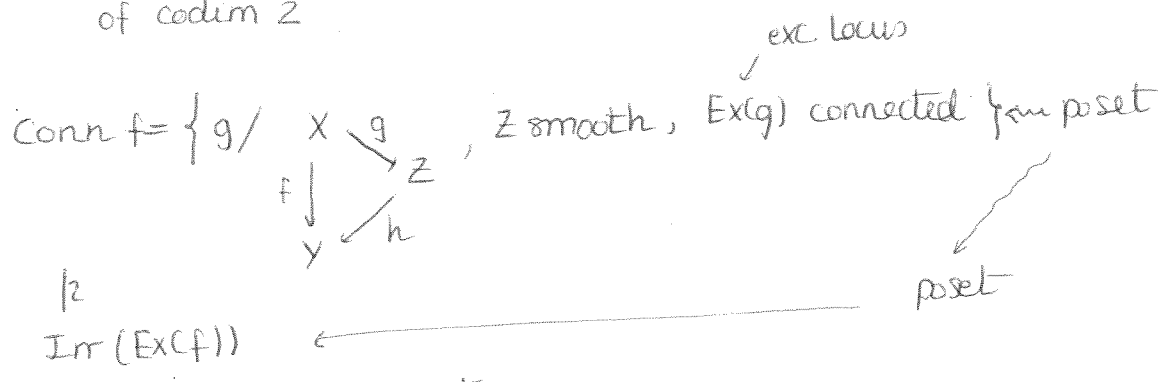 of codim 2
exc. locus
Conn f = { g / X g Z , Z smooth, Ex(g) connected } poset
f
h
Y
poset
Irr (Ex(f))